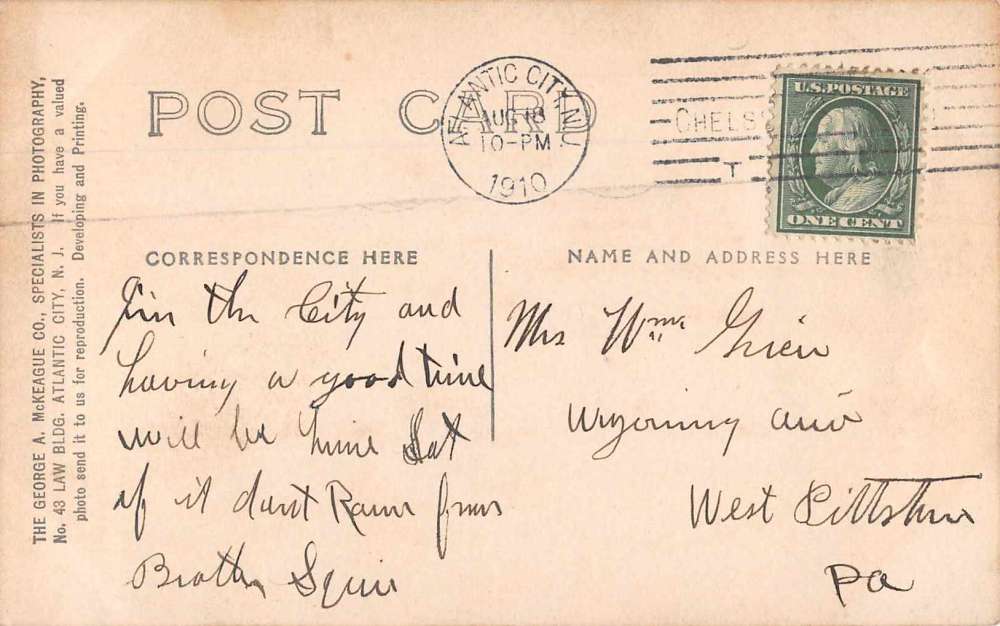 POST CARD
ATLANTIC CITY, N.J.
AUG 18
10-PM
1910
CHELS
T
U.S. POSTAGE
ONE CENT
THE GEORGE A. McKEAGUE CO., SPECIALISTS IN PHOTOGRAPHY,
No. 43 LAW BLDG. ATLANTIC CITY, N. J. If you have a valued
photo send it to us for reproduction. Developing and Printing.
CORRESPONDENCE HERE
in the City and
having a good time
will be home Sat
if it dont Rain from
Brother
NAME AND ADDRESS HERE
Mrs Wm.
Wyoming Ave
West Pittston
Pa